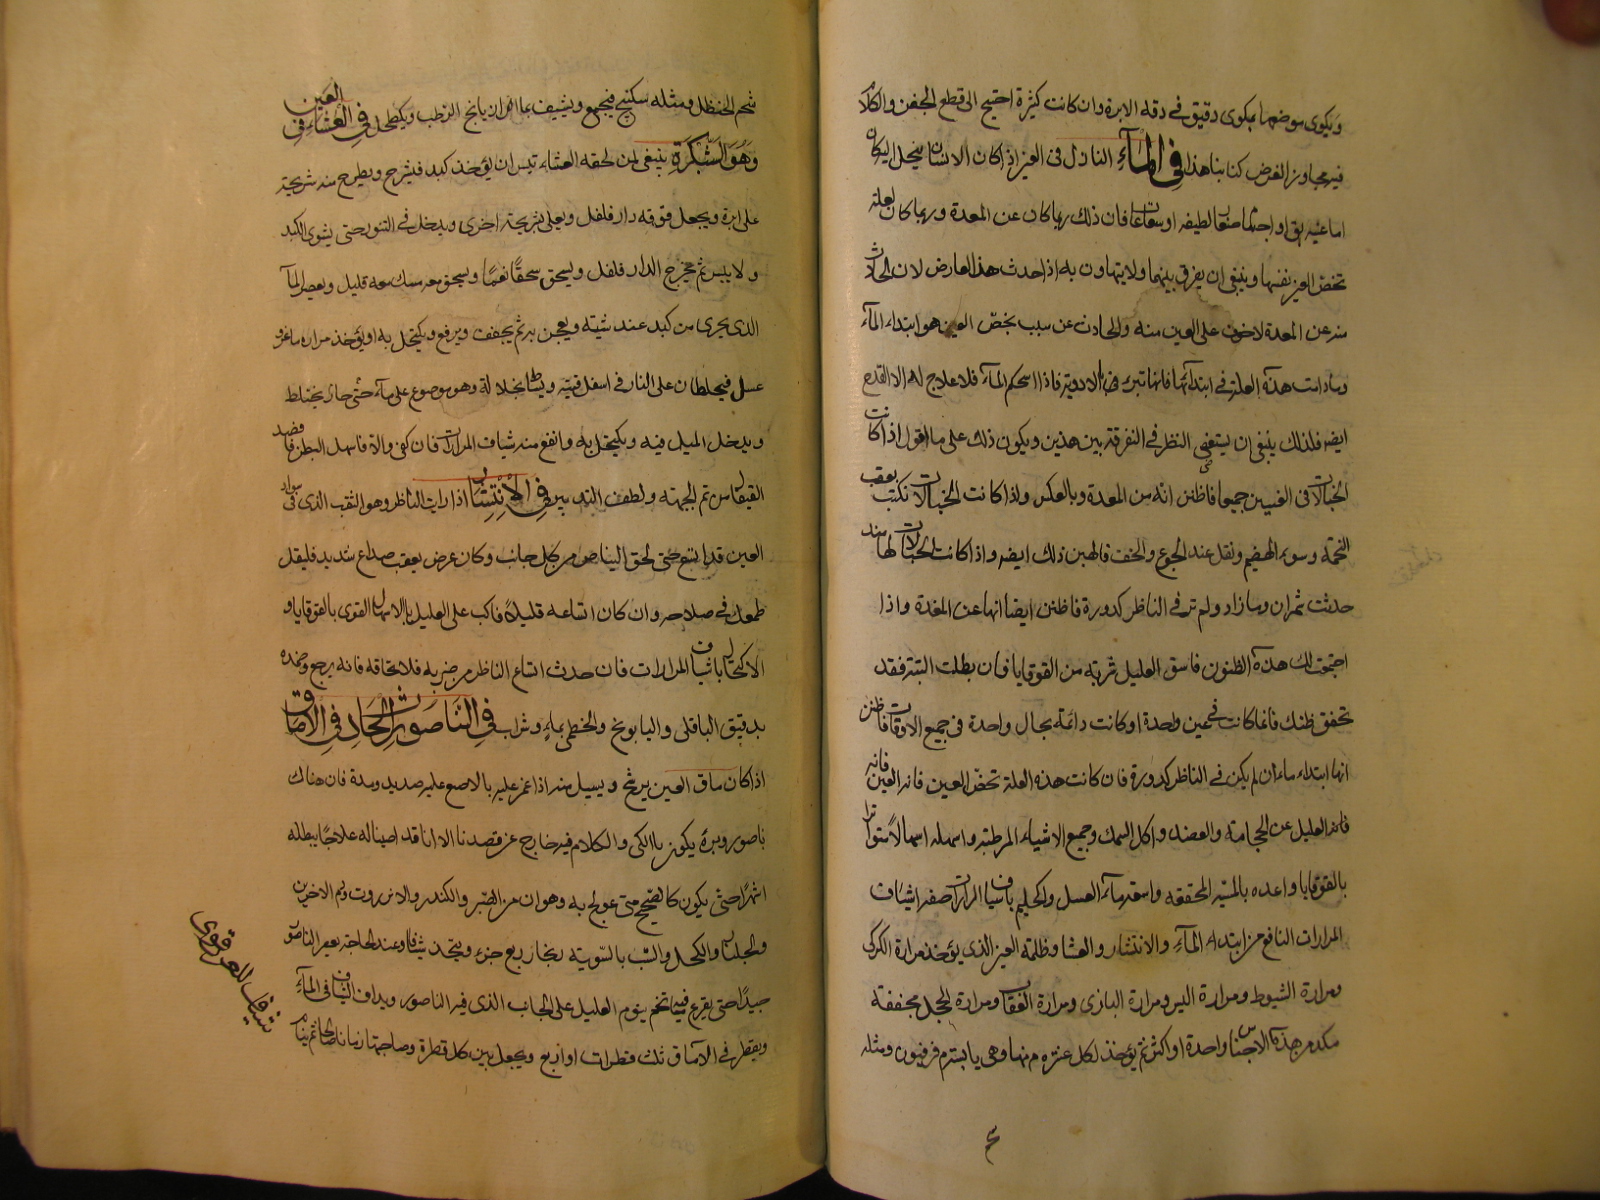 ويكوى موضعها بمكوى دقيق في دقه الابرة وان كانت كثيرة احتيج الى قطع الجفن والكلام
فيه مجاوز الغرض كتابنا هذا في المآء النازل في العين اذا كان الانسان يتخيل اليه كان
اما عينيه بق او اجساما صغارا لطيفه او شعاعا فان ذلك ربما كان عن المعدة وربما كان لعلة
تخص العين نفسها وينبغي ان يفرق بينهما ولا يتهاون به اذا حدث هذا العارض لان الحادث
منه عن المعدة لاخوف على العين منه والحادث عن سبب يخص العين هو ابتداء المآء
ومادامت هذه العلة في ابتدآئها فانها تبرء بالادوية فاذا استحكم المآء فلا علاج له الا القدح
ايضه فلذلك ينبغي ان يستقصى النظر في التفرقة بين هذين ويكون ذلك على ما اقول اذا كانت
الخيالات في العينين جميعا فاظنن انه من المعدة وبالعكس واذا كانت الخيالات بعقب
التخمة وسوء الهضم وتقل عند الجوع والخف فالهين ذلك ايضه واذا كانت الخيالات لها منذ
حدثت شهران وما زاد ولم تر في الناظر كدورة فاظنن ايضا انها عن المعدة واذا
اجتمعت لك هذه الظنون فاسق العليل شربة من القوقايا فان بطلت البتة فقد
تحقق ظنك فاما كانت في عين واحدة او كانت دائمة بحال واحدة في جميع الاوقات فاظنن
انها ابتداء ماء ان لم يكن في الناظر كدورة فان كانت هذه العلة تخص العين فانه
فانه العليل عن الحجامة والفصد واكل السمك وجميع الاشياء المرطبة واسهله اسهالا متواترا
بالقوقايا واغده بالمحققه واسقه مآء العسل واكحليه باشياف المرارات صفه اشياف
المرارات النافع من ابتداء المآء والانتشار والعشا وظلمة العين الذي يؤخذ مرارة الكركى
ومرارة الشبوط ومرارة التيس ومرارة البازى ومرارة العقاب ومرارة الحجل مجففة
من هذه الاجناس واحدة او اكثر ثم يؤخذ لكل عشرة م منها وهى يابسة م فرفيون ومثله
شحم الحنظل ومثله سكبينج فيجمع ويشيف بماء الرازيانج الرطب ويكتحل في العشاء في العين
وهو الشبكرة ينبغي لمن لحقه العشاء تيس ان يؤخذ كبد فيشرح ويطرح منه شريحة
على ابرة ويجعل فوقه دار فلفل ويعلى بشريحة اخرى ويدخل في التنور حتى يشوى الكبد
ولا ييبس ثم يخرج الدار فلفل ويسحق سحقا نعما ويسحق معه مسك معه قليل ويعصر المآء
الذى يجرى من كبد عند شيته ويعجن به ثم يجفف ويرفع ويكتحل به او يؤخذ مرارة ماعز و
عسل فيخلطان على النار في اسفل قنينة ويساط بخلالة وهو موضوع على مآء حتى حار يختلط
ويدخل الميل فيه ويكتحل به وانفع منه شياف المرارات فان كفى والا فاسهل البطن فافصد
القيفال ثم الجبهة ولطف التدبير في الانتشار اذا رايت الناظر وهو الثقب الذى في سواد
العين قد اتسع حتى لحق البياض من كل جانب وكان عرض بعقب صداع شديد فليقل
طمعك في صلاحه وان كان اتساعه قليلا فاكب على العليل بالاسهال القوى بالقوقايا و
الاكتحال باشياف المرارات فان حدث اتساع الناظر من ضربه فلا تخافه فانه يرجع وضمده
بدقيق الباقلى والبابونج والخطمى بماء وشراب في الناصور الحادث في الاماق
اذا كان ماق العين يرشح ويسيل منه اذا غمز عليه بالاصبع عليه صديد ومدة فان هناك
ناصور وبرؤه يكون بالكى والكلام فيه خارج عن قصدنا الا انا قد اصبنا له علاجا يبطله
اشهرا حتى يكون كالصحيح متى عولج به وهو ان من الصبر والكندر والانزروت ودم الاخوين
والجلنار والكحل والشب بالسوية زنجار ربع جزء ويتخذ شيافا وعند الحاجة يعصر الناصور
جيدا حتى يفرغ فيه ثم ينوم العليل على الجانب الذى فيه الناصور ويداف الشياف في المآء
ويقطر في الآماق ثلث قطرات او اربع ويجعل بين كل قطرة وصاحبتها زمانا صالحا ثم ينام
شياف للعز قوى